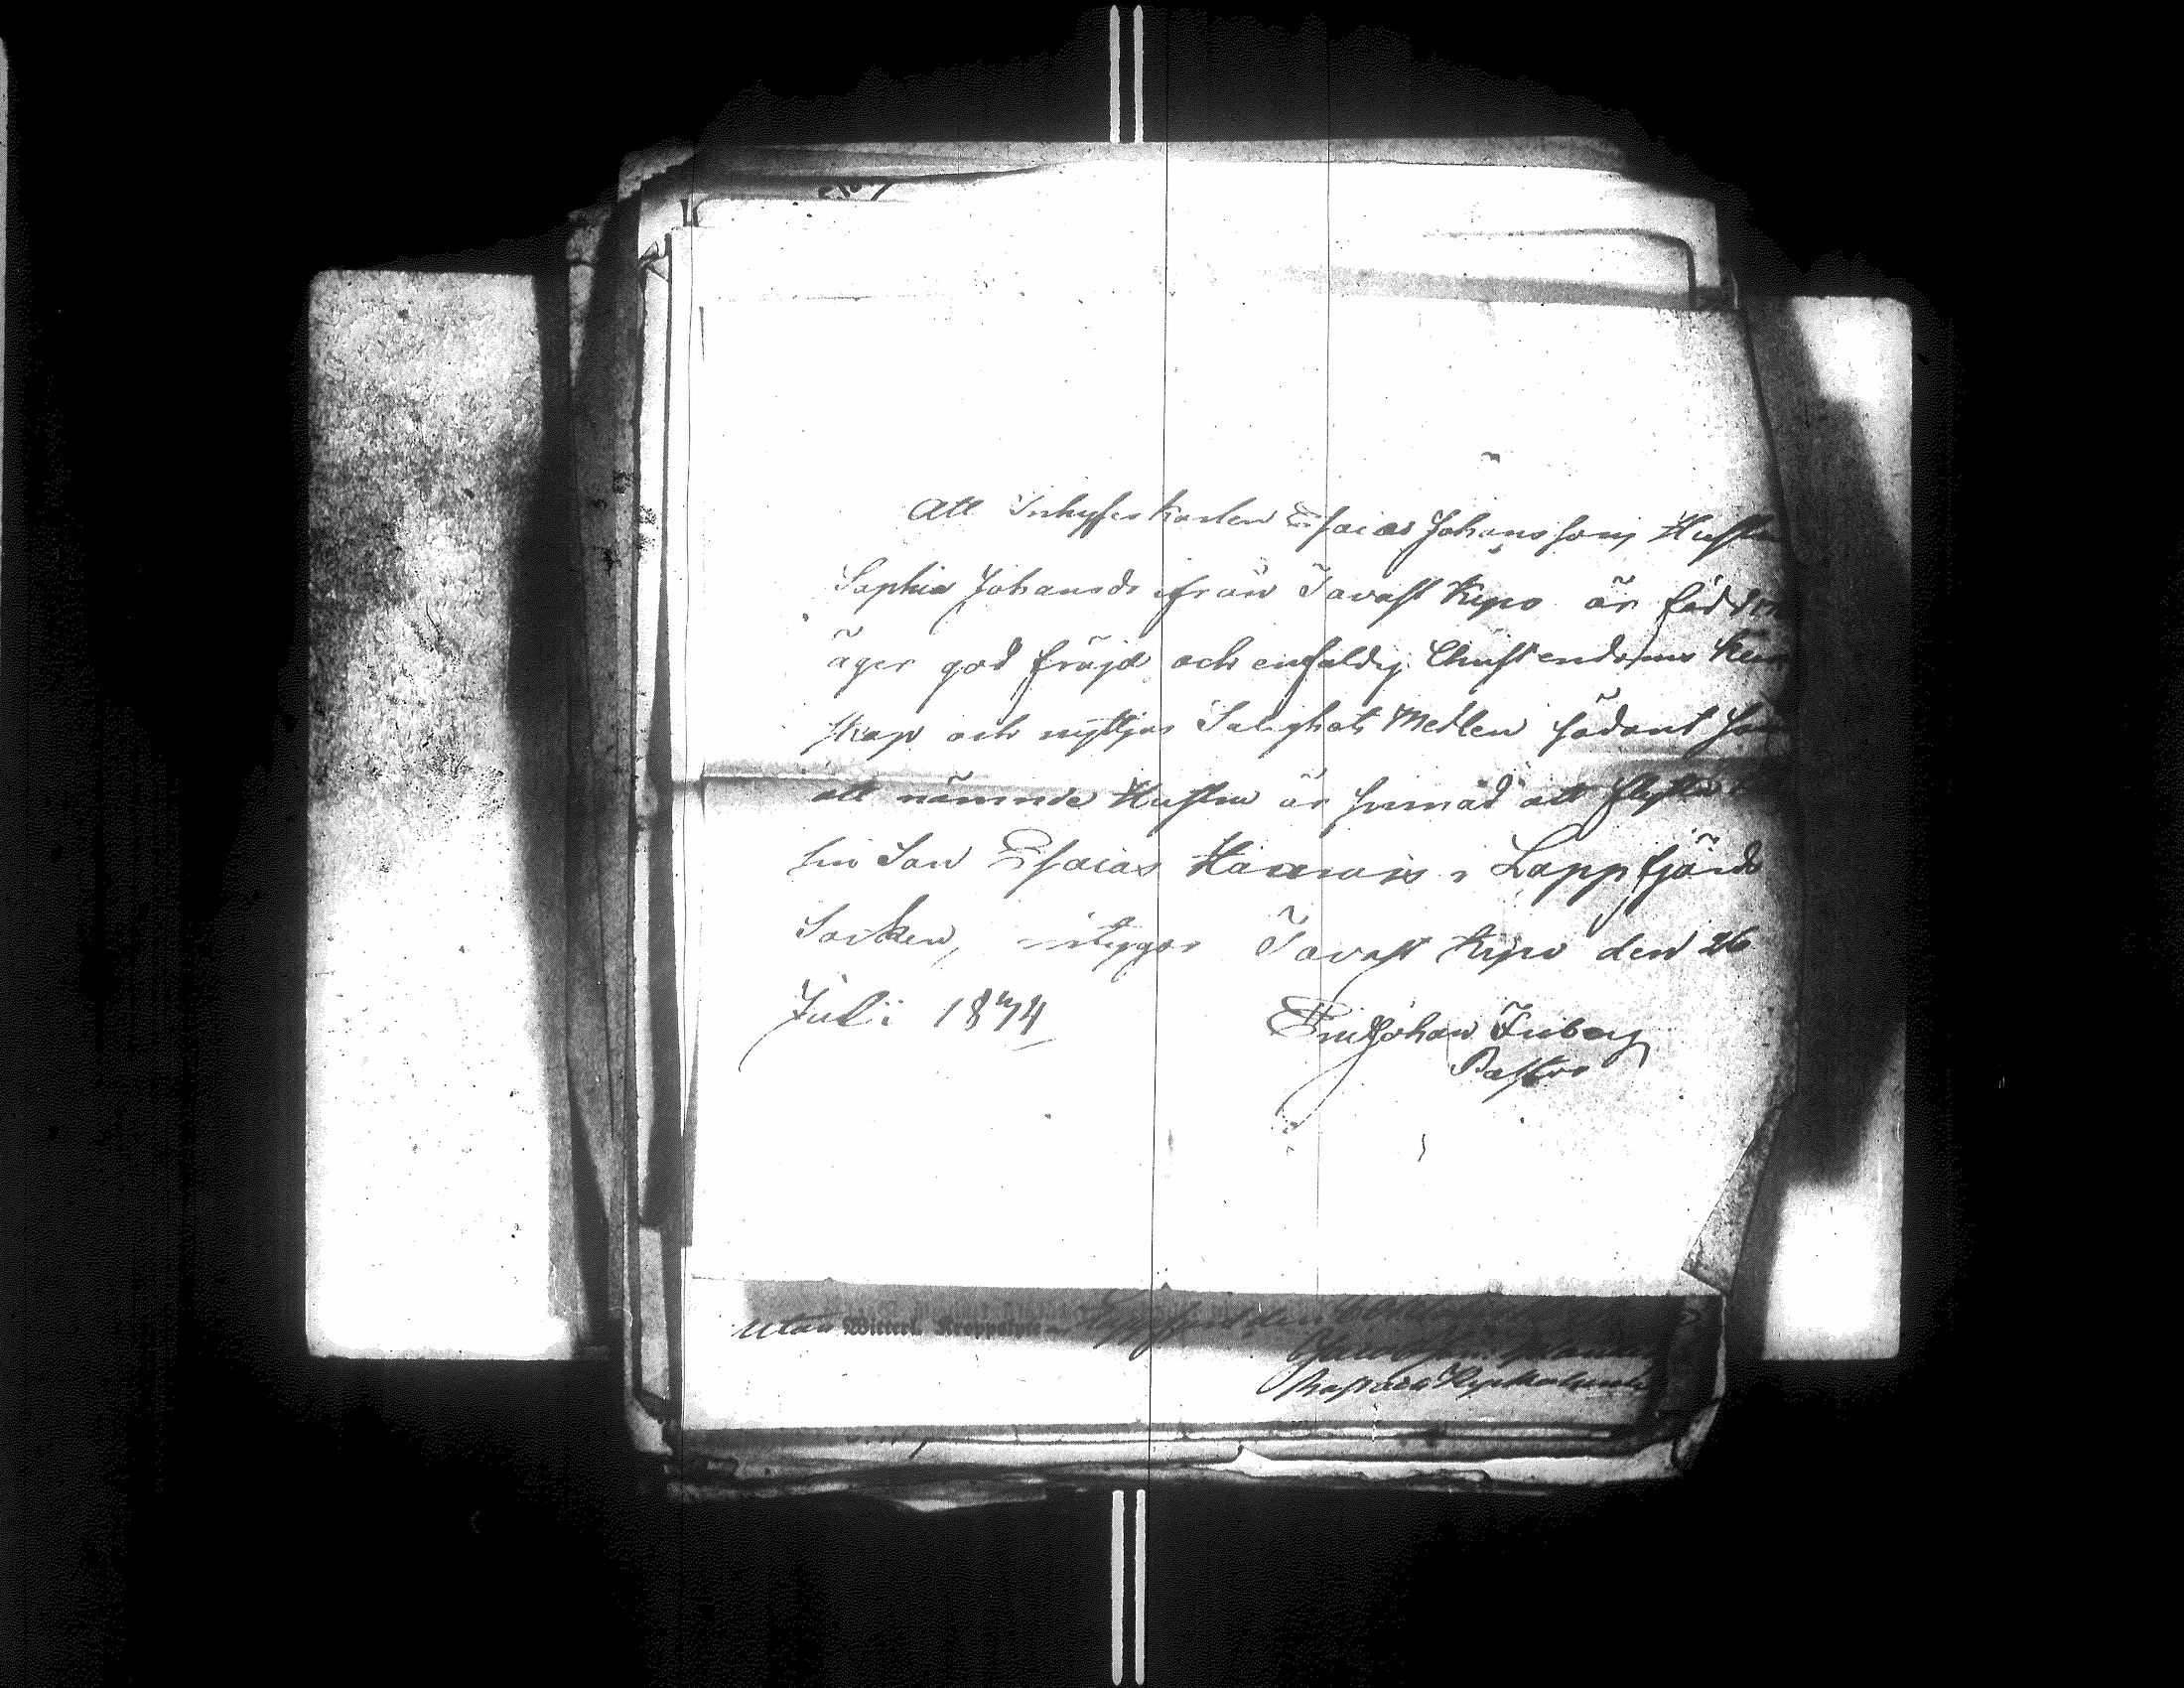 Att Inhyses karlen Esaias Johanssons Hustru
Sophia Johansdr från Tavast Kyro är född
äger god fräjd och enfaldig Christendoms Kun
skap och nyttjar Salighets Medlen sådant
att nämnde Hustru är sinnad att flytta
sin Son Esaias i Lappfjärds
Socken, intygar Tavast Kyro den 26
Juli 1874
Johan Friberg
Pastor
utan Witterl. Kroppslyte
den